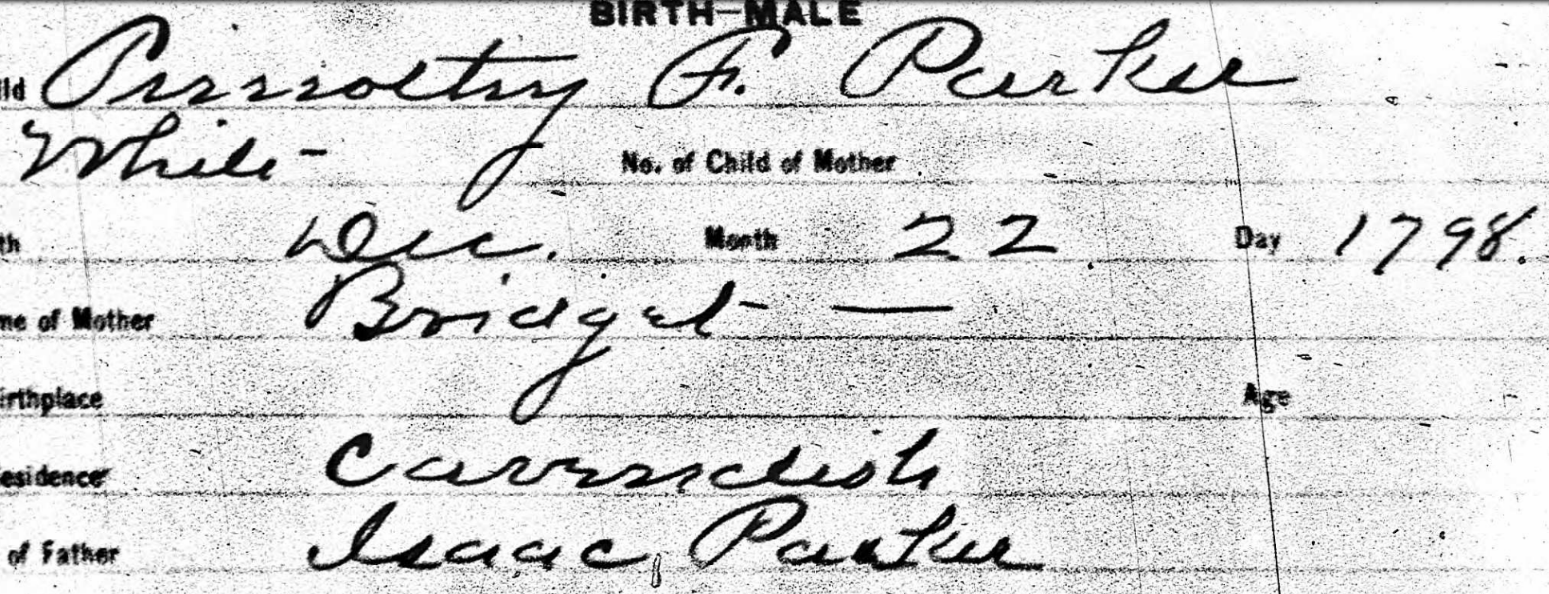 BIRTH—MALE
ild F. Parker
White - No. of Child of Mother
th Dec. Month 22 Day 1798.
me of Mother Bridget —
irthplace Age
esidence Cavendish
of Father Isaac Parker